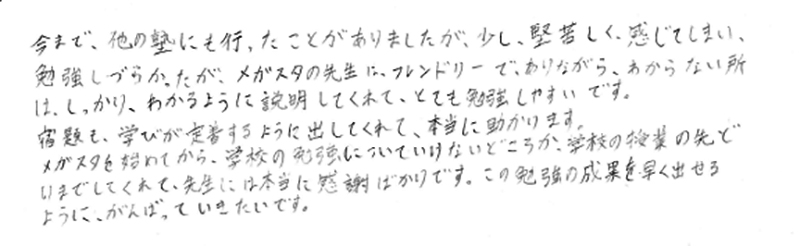 今まで、他の塾にも行ったことがありましたが、少し、堅苦しく、感じてしまい、
勉強しづらかったが、メガスタの先生は、フレンドリーで、ありながら、わからない所
は、しっかり、わかるように説明してくれて、とても勉強しやすいです。
宿題も、学びが定着するように出してくれて、本当に助かります。
メガスタを始めてから、学校の勉強についていけないどころか、学校の授業の先ど
りまでしてくれて、先生には本当に感謝ばかりです。この勉強の成果を早く出せる
ように、がんばっていきたいです。